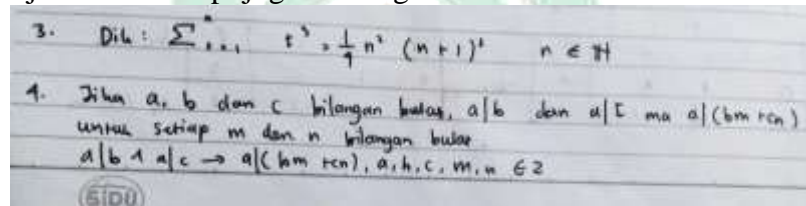 3. Dik : Σⁿᵢ₌₁ i³ = 1/4 n² (n + 1)² n ∈ N
4. Jika a, b dan c bilangan bulat, a|b dan a|c ma a|(bm + cn)
untuk setiap m dan n bilangan bulat
a|b ∧ a|c → a|(bm + cn), a, b, c, m, n ∈ Z
SIDU